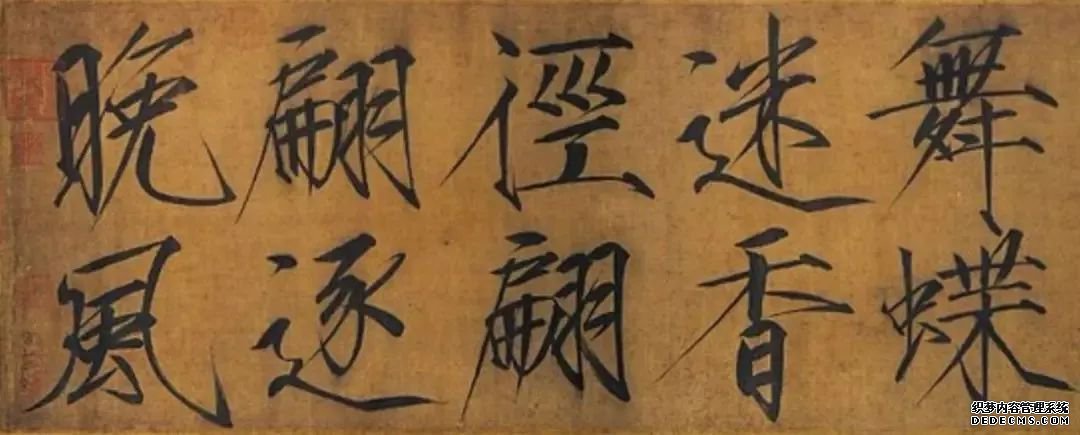 舞蝶
迷香
徑翩
翩逐
晚風
织梦内容管理系统
DEDECMS.COM